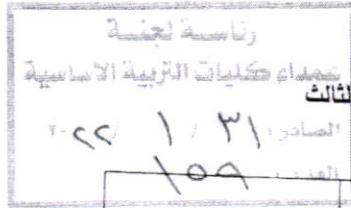 رئاسة لجنة
عمداء كليات التربية الأساسية
الثالث
الصادر: ٣١ / ١ / ٢٠٢٢
العدد: ١٥٩